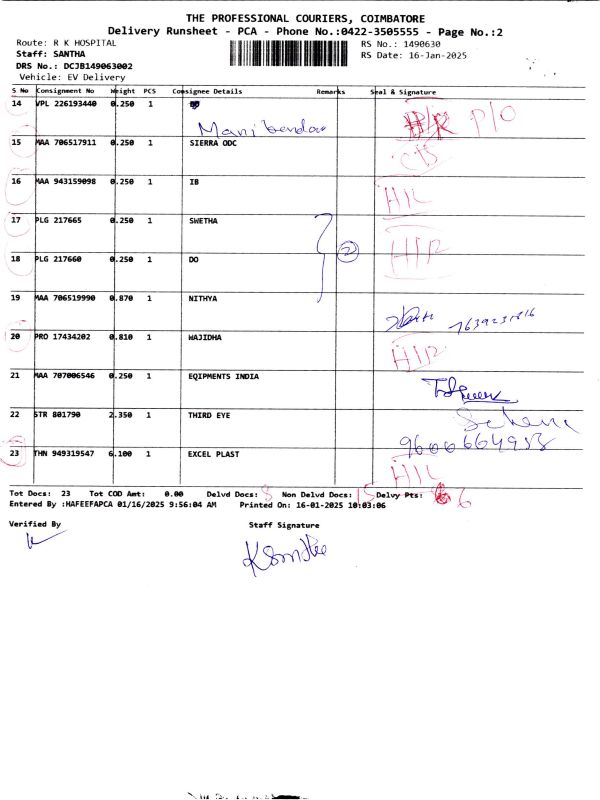 THE PROFESSIONAL COURIERS, COIMBATORE
Delivery Runsheet - PCA - Phone No.:0422-3505555 - Page No.:2
Route: R K HOSPITAL
RS No.: 1490630
Staff: SANTHA
RS Date: 16-Jan-2025
DRS No.: DCJB149063002
Vehicle: EV Delivery
S No Consignment No Weight PCS Consignee Details Remarks Seal & Signature
14 VPL 226193440 0.250 1 DO P/O
15 MAA 706517911 0.250 1 SIERRA ODC
16 MAA 943159098 0.250 1 IB
17 PLG 217665 0.250 1 SWETHA
18 PLG 217660 0.250 1 DO 2
19 MAA 706519990 0.870 1 NITHYA
20 PRO 17434202 0.810 1 WAJIDHA
21 MAA 707006546 0.250 1 EQIPMENTS INDIA
22 STR 801790 2.350 1 THIRD EYE
9600664953
23 THN 949319547 6.100 1 EXCEL PLAST
Tot Docs: 23 Tot COD Amt: 0.00 Delvd Docs: 8 Non Delvd Docs: 15 Delvy Pts: 6
Entered By :HAFEEFAPCA 01/16/2025 9:56:04 AM Printed On: 16-01-2025 10:03:06
Verified By Staff Signature